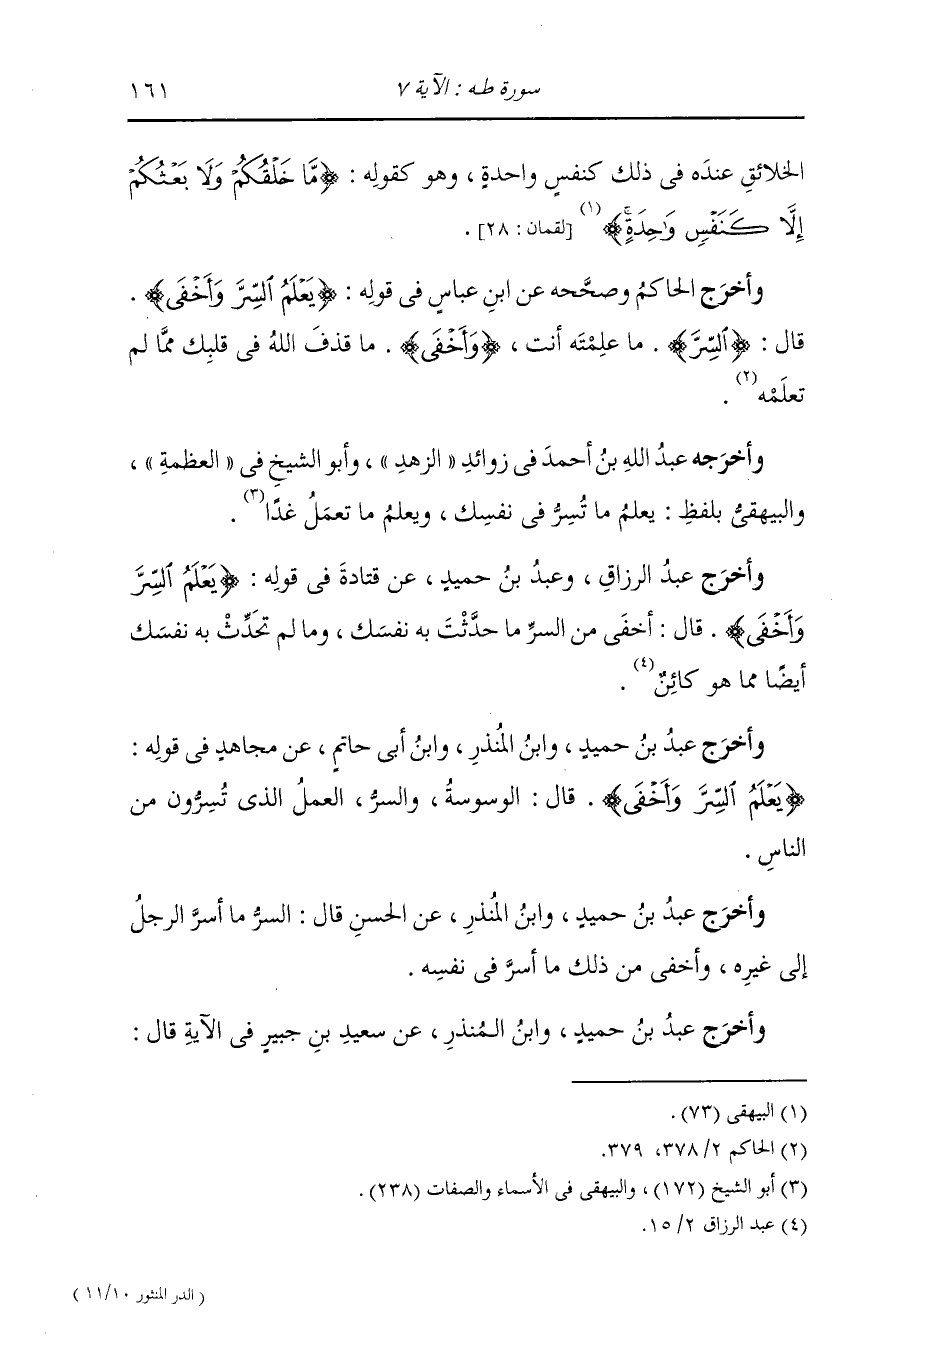 سورة طه : الآية ٧
١٦١
الخلائقِ عندَه فى ذلك كنفسٍ واحدةٍ ، وهو كقولِه : ﴿مَّا خَلْقُكُمْ وَلَا بَعْثُكُمْ
إِلَّا كَنَفْسٍ وَٰحِدَةٍۚ﴾(١) [لقمان : ٢٨] .
وأخرَج الحاكمُ وصحَّحه عن ابنِ عباسٍ فى قولِه : ﴿يَعْلَمُ ٱلسِّرَّ وَأَخْفَى﴾ .
قال : ﴿ٱلسِّرَّ﴾ . ما علِمْتَه أنت ، ﴿وَأَخْفَى﴾ . ما قذفَ اللهُ فى قلبِك ممَّا لم
تعلَمْه(٢) .
وأخرَجه عبدُ اللهِ بنُ أحمدَ فى زوائدِ « الزهدِ » ، وأبو الشيخِ فى « العظمةِ » ،
والبيهقىُّ بلفظِ : يعلمُ ما تُسِرُّ فى نفسِك ، ويعلمُ ما تعمَلُ غدًا(٣) .
وأخرَج عبدُ الرزاقِ ، وعبدُ بنُ حميدٍ ، عن قتادةَ فى قولِه : ﴿يَعْلَمُ ٱلسِّرَّ
وَأَخْفَى﴾ . قال : أخفَى من السرِّ ما حدَّثْتَ به نفسَك ، وما لم تحدِّثْ به نفسَك
أيضًا مما هو كائِنٌ(٤) .
وأخرَج عبدُ بنُ حميدٍ ، وابنُ المُنذرِ ، وابنُ أبى حاتمٍ ، عن مجاهدٍ فى قولِه :
﴿يَعْلَمُ ٱلسِّرَّ وَأَخْفَى﴾ . قال : الوسوسةُ ، والسرُّ ، العملُ الذى تُسِرُّون من
الناسِ .
وأخرَج عبدُ بنُ حميدٍ ، وابنُ المُنذرِ ، عن الحسنِ قال : السرُّ ما أسرَّ الرجلُ
إلى غيرِه ، وأخفى من ذلك ما أسرَّ فى نفسِه .
وأخرَج عبدُ بنُ حميدٍ ، وابنُ المُنذرِ ، عن سعيدِ بنِ جبيرٍ فى الآيةِ قال :
(١) البيهقى (٧٣) .
(٢) الحاكم ٢/ ٣٧٨، ٣٧٩.
(٣) أبو الشيخ (١٧٢) ، والبيهقى فى الأسماء والصفات (٢٣٨) .
(٤) عبد الرزاق ٢/ ١٥.
( الدر المنثور ١١/١٠ )